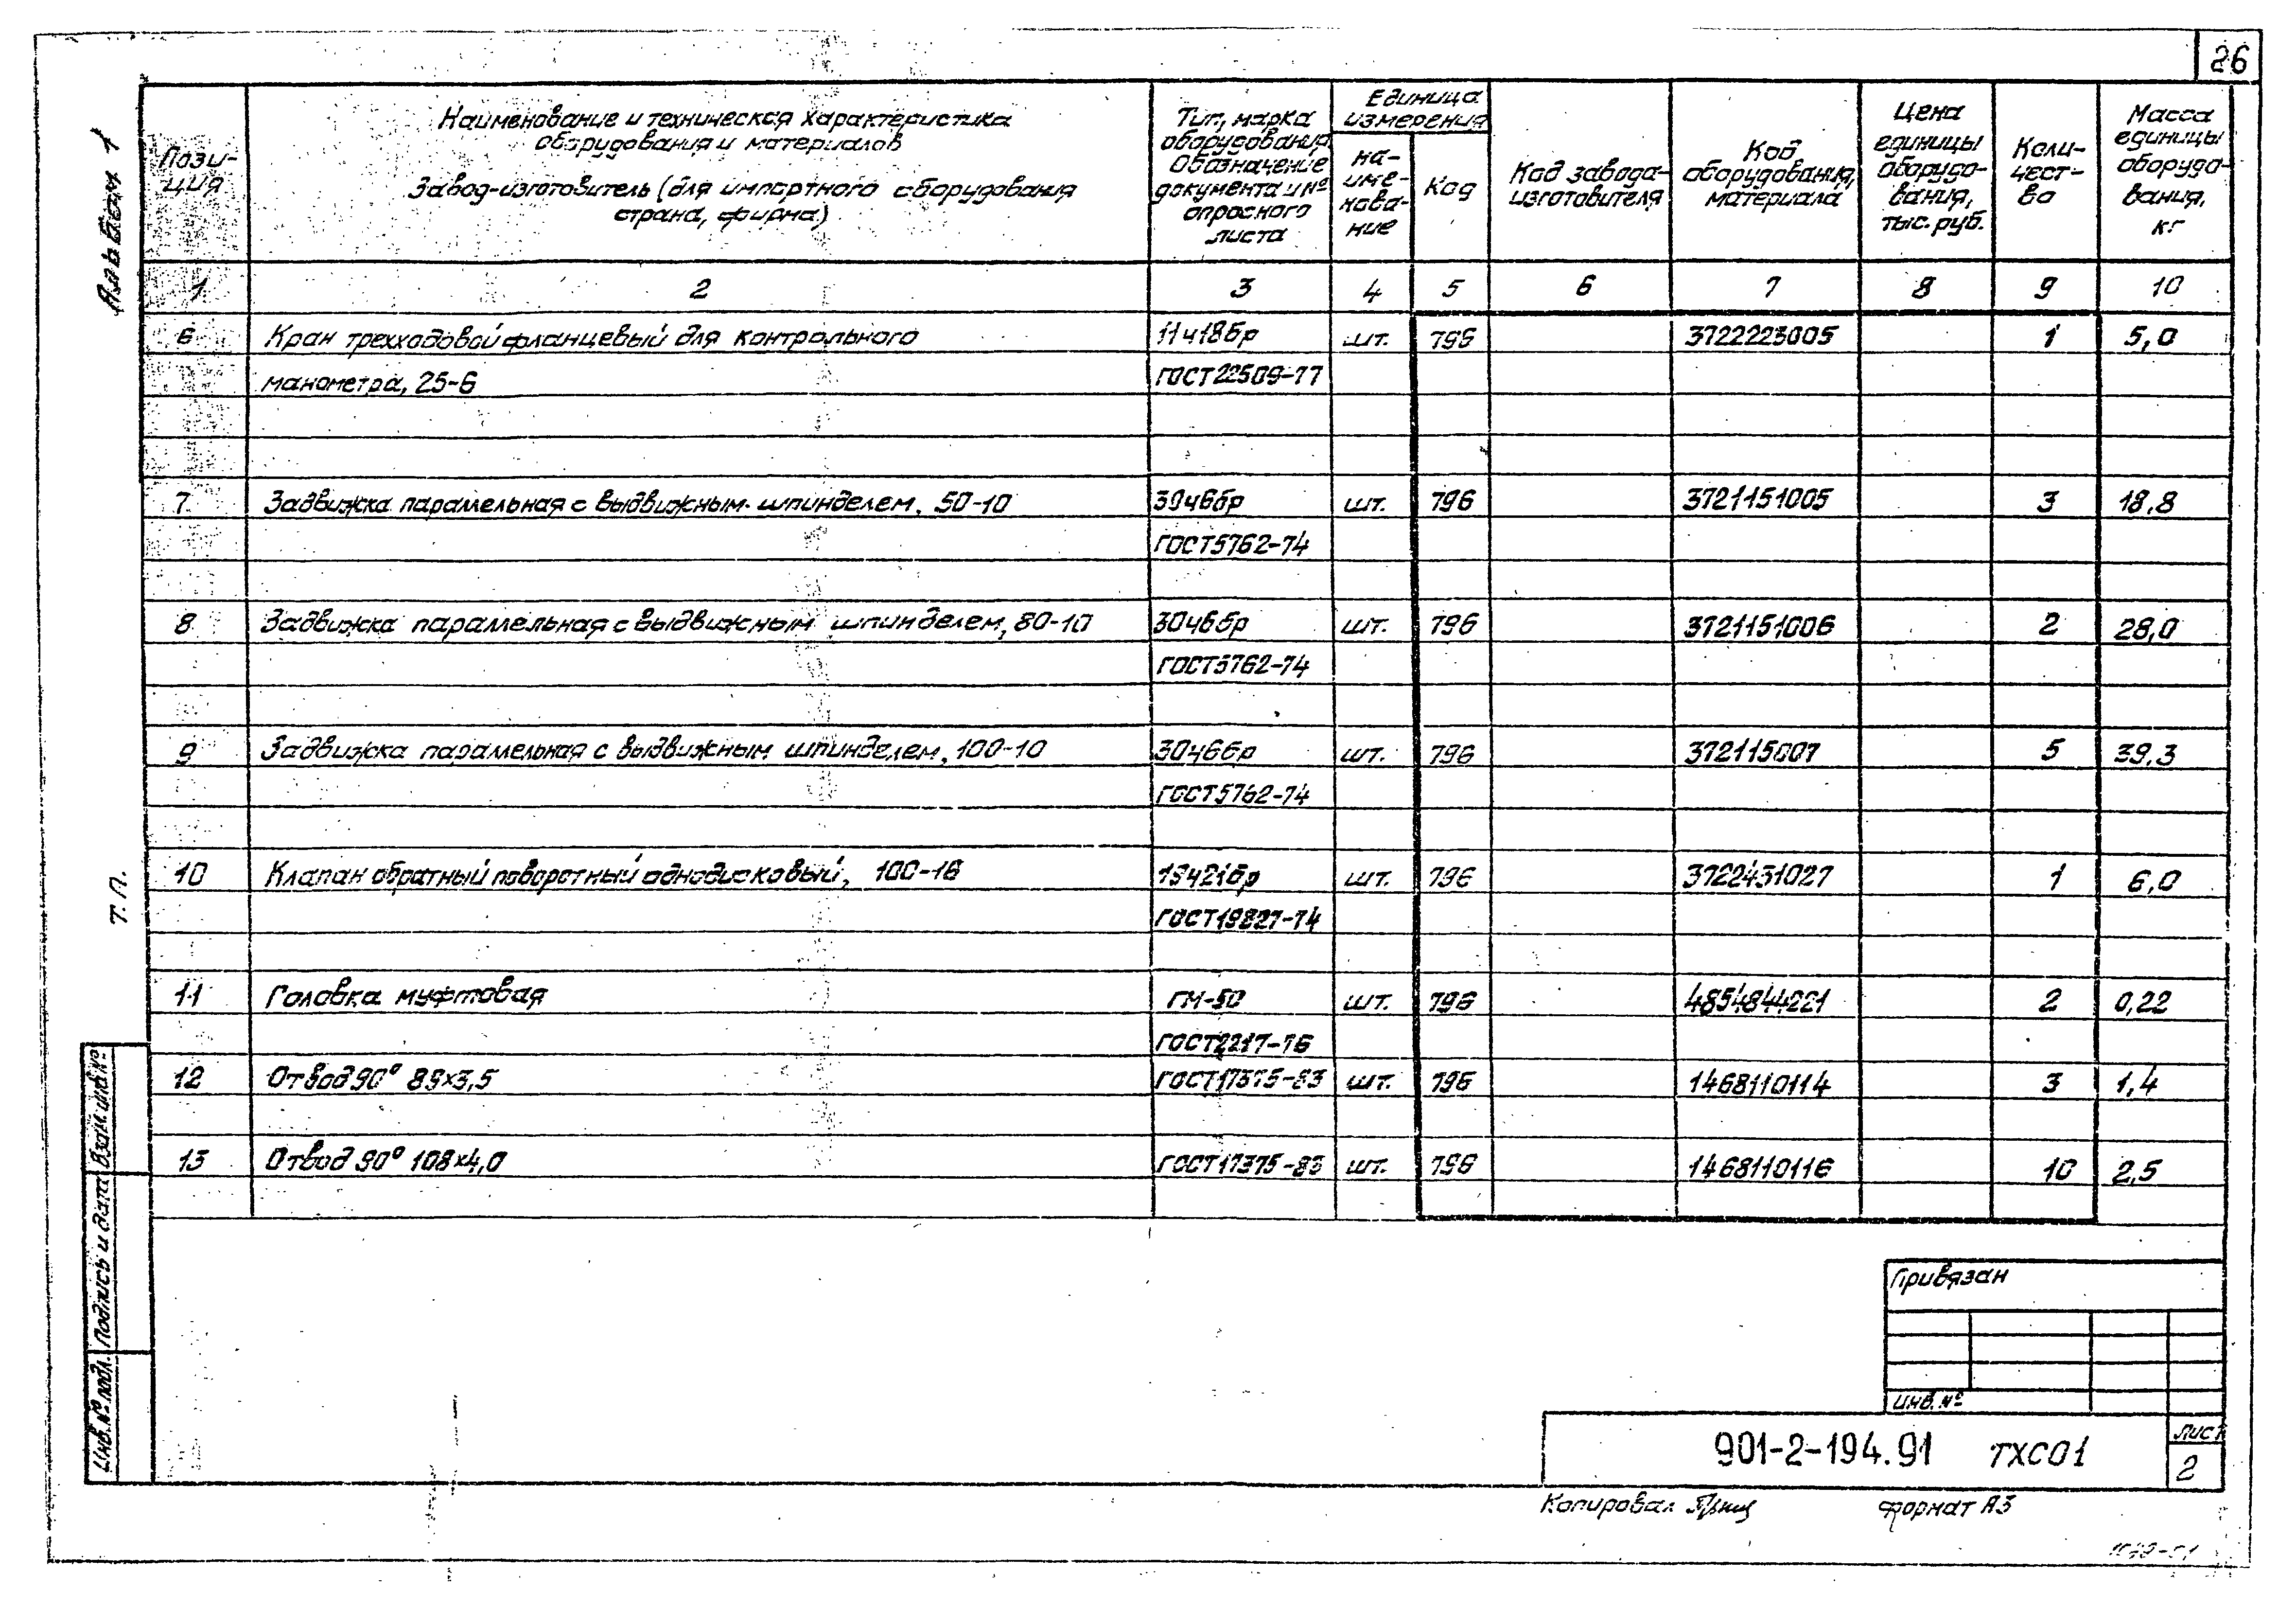 26
Альбом 1
Т.П.
Пози-
ция
Наименование и техническая характеристика
оборудования и материалов
Завод-изготовитель (для импортного оборудования
страна, фирма)
Тип, марка
оборудования
Обозначение
документа и №
опросного
листа
Единица
измерения
на-
име-
нова-
ние
Код
Код завода-
изготовителя
Код
оборудования,
материала
Цена
единицы
оборудо-
вания,
тыс. руб.
Коли-
чест-
во
Масса
единицы
оборудо-
вания,
кг
1 2 3 4 5 6 7 8 9 10
6 Кран трехходовой фланцевый для контрольного 11ч18бр шт. 796 3722223005 1 5,0
манометра, 25-6 ГОСТ 22509-77
7 Задвижка параллельная с выдвижным шпинделем, 50-10 30ч6бр шт. 796 3721151005 3 18,8
ГОСТ 5762-74
8 Задвижка параллельная с выдвижным шпинделем, 80-10 30ч6бр шт. 796 3721151006 2 28,0
ГОСТ 5762-74
9 Задвижка параллельная с выдвижным шпинделем, 100-10 30ч6бр шт. 796 372115007 5 39,3
ГОСТ 5762-74
10 Клапан обратный поворотный однодисковый, 100-16 19ч21бр шт. 796 3722431027 1 6,0
ГОСТ 19827-74
11 Головка муфтовая ГМ-50 шт. 796 4854844221 2 0,22
ГОСТ 2217-76
12 Отвод 90° 89×3,5 ГОСТ 17375-83 шт. 796 1468110114 3 1,4
13 Отвод 90° 108×4,0 ГОСТ 17375-83 шт. 796 1468110116 10 2,5
Взам. инв. №
Подпись и дата
Инв. № подл.
Привязан
Инв. №
901-2-194.91 ТХСО1
Лист
2
Копировал
Формат А3